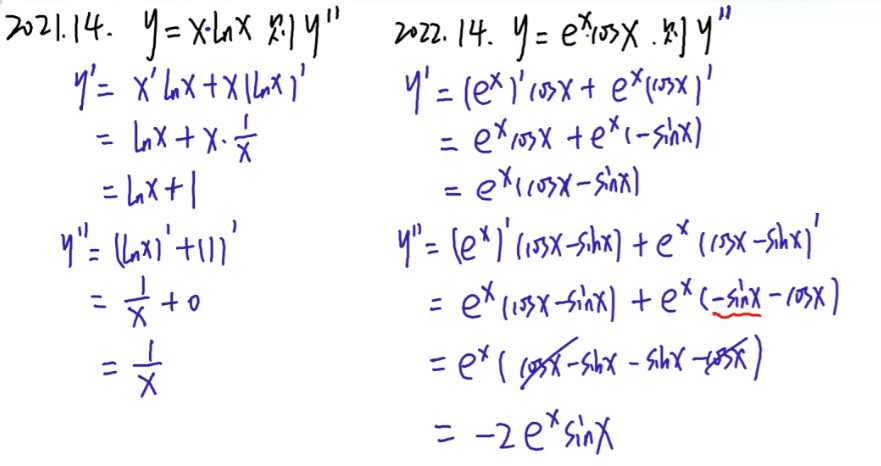 2021.14. y=x·lnx 则y''
y'= x'lnx+x(lnx)'
= lnx+x·1/x
=lnx+1
y''=(lnx)'+(1)'
= 1/x+0
= 1/x
2022.14. y=e^x cosx.则y''
y'=(e^x)'cosx+ e^x(cosx)'
= e^x cosx +e^x(-sinx)
= e^x(cosx-sinx)
y''=(e^x)'(cosx-sinx)+e^x(cosx-sinx)'
= e^x(cosx-sinx)+e^x(-sinx-cosx)
=e^x(cosx-sinx-sinx-cosx)
= -2e^x sinx